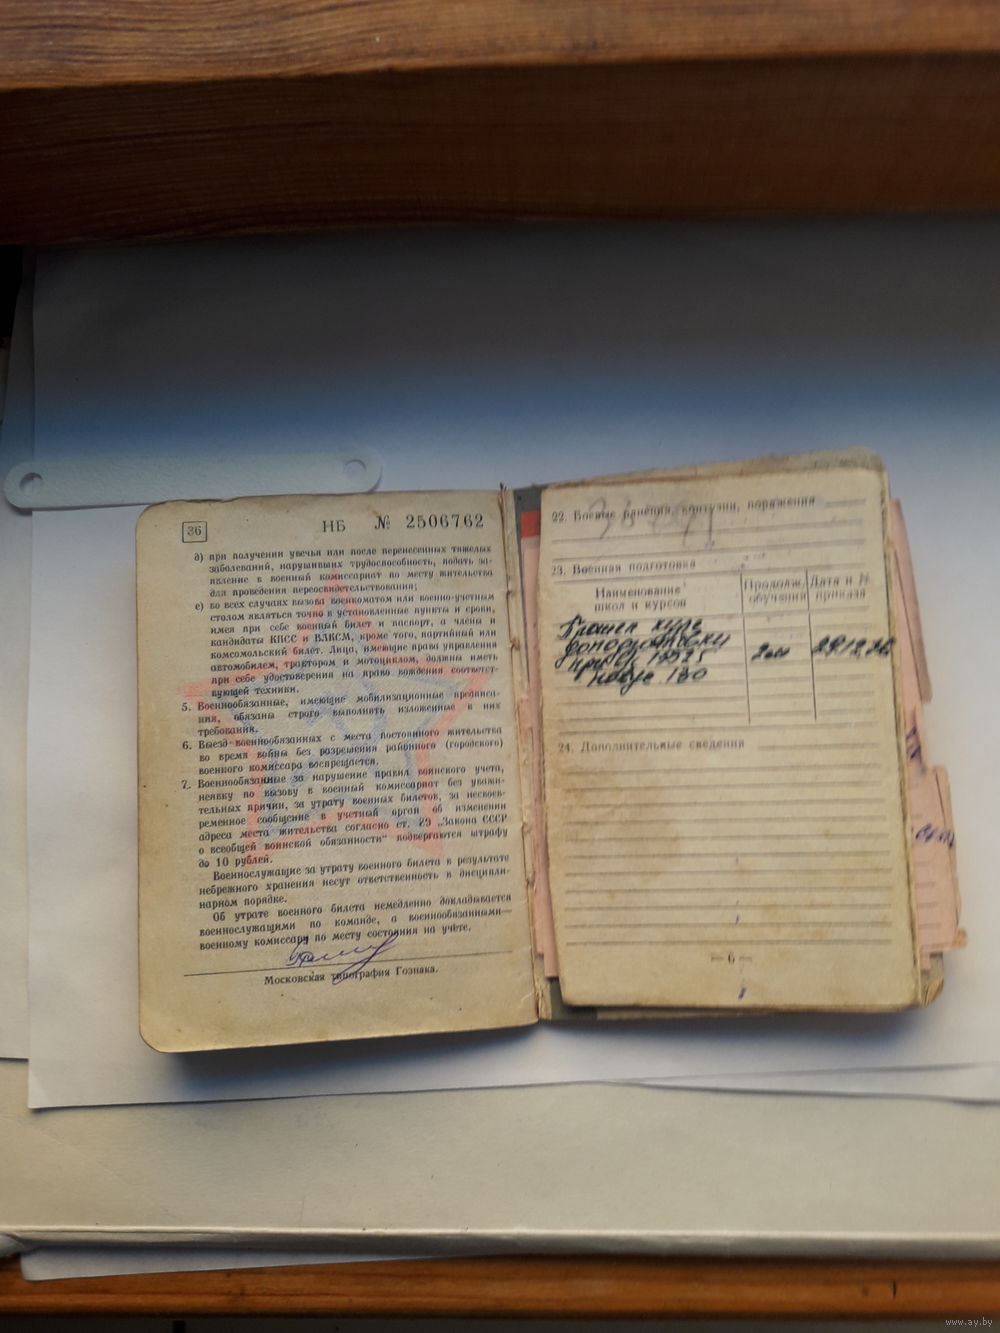 36
НБ № 2506762
д) при получении увечья или после перенесенных тяжелых
заболеваний, нарушивших трудоспособность, подать за-
явление в военный комиссариат по месту жительства
для проведения переосвидетельствования;
е) во всех случаях вызова военкоматом или военно-учетным
столом являться точно в установленные пункты и сроки,
имея при себе военный билет и паспорт, а члены и
кандидаты КПСС и ВЛКСМ, кроме того, партийный или
комсомольский билет. Лица, имеющие права управления
автомобилем, трактором и мотоциклом, должны иметь
при себе удостоверения на право вождения соответст-
вующей техники.
5. Военнообязанные, имеющие мобилизационные предписа-
ния, обязаны строго выполнять изложенные в них
требования.
6. Выезд военнообязанных с места постоянного жительства
во время войны без разрешения районного (городского)
военного комиссара воспрещается.
7. Военнообязанные за нарушение правил воинского учета,
неявку по вызову в военный комиссариат без уважи-
тельных причин, за утрату военных билетов, за несвоев-
ременное сообщение в учетный орган об изменении
адреса места жительства согласно ст. 89 „Закона СССР
о всеобщей воинской обязанности“ подвергаются штрафу
до 10 рублей.
Военнослужащие за утрату военного билета в результате
небрежного хранения несут ответственность в дисципли-
нарном порядке.
Об утрате военного билета немедленно докладывается
военнослужащими по команде, а военнообязанными—
военному комиссару по месту состояния на учёте.
Московская типография Гознака.
22. Боевые ранения, контузии, поражения
23. Военная подготовка
Наименование школ и курсов
Продолж. обучения
Дата и № приказа
24. Дополнительные сведения
— 6 —
www.ay.by